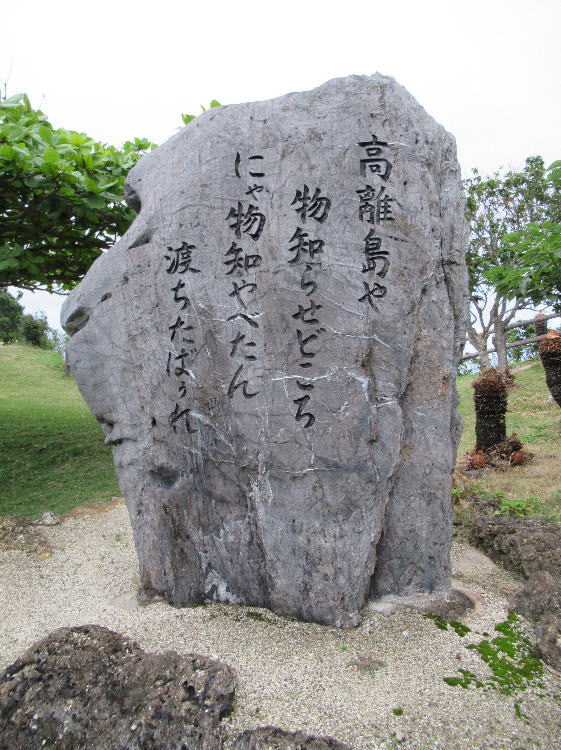 高離島や
物知らせどころ
にゃ物知やべたん
渡ちたばうれ